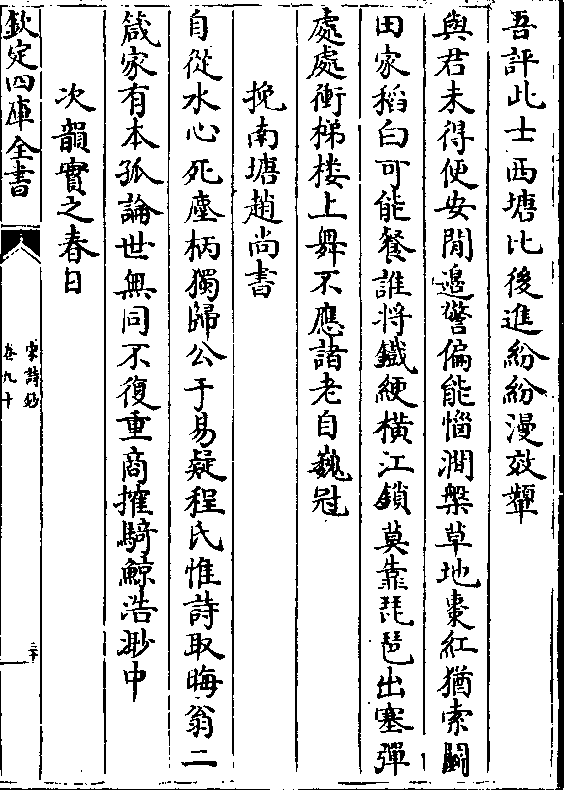 吾評此士西塘比後進紛紛漫效顰
與君未得便安閒邊警偏能惱澗槃草地棗紅猶索鬭
田家稻白可能餐誰將鐵綆横江鎖莫靠琵琶出塞彈
處處衝梯樓上舞不應諸老自巍冠
挽南塘趙尚書
自從水心死麈柄獨歸公于易疑程氏惟詩取晦翁二
箴家有本孤論世無同不復重商搉騎鯨浩渺中
次韻實之春日
欽定四庫全書
宋詩鈔
卷九十
三十